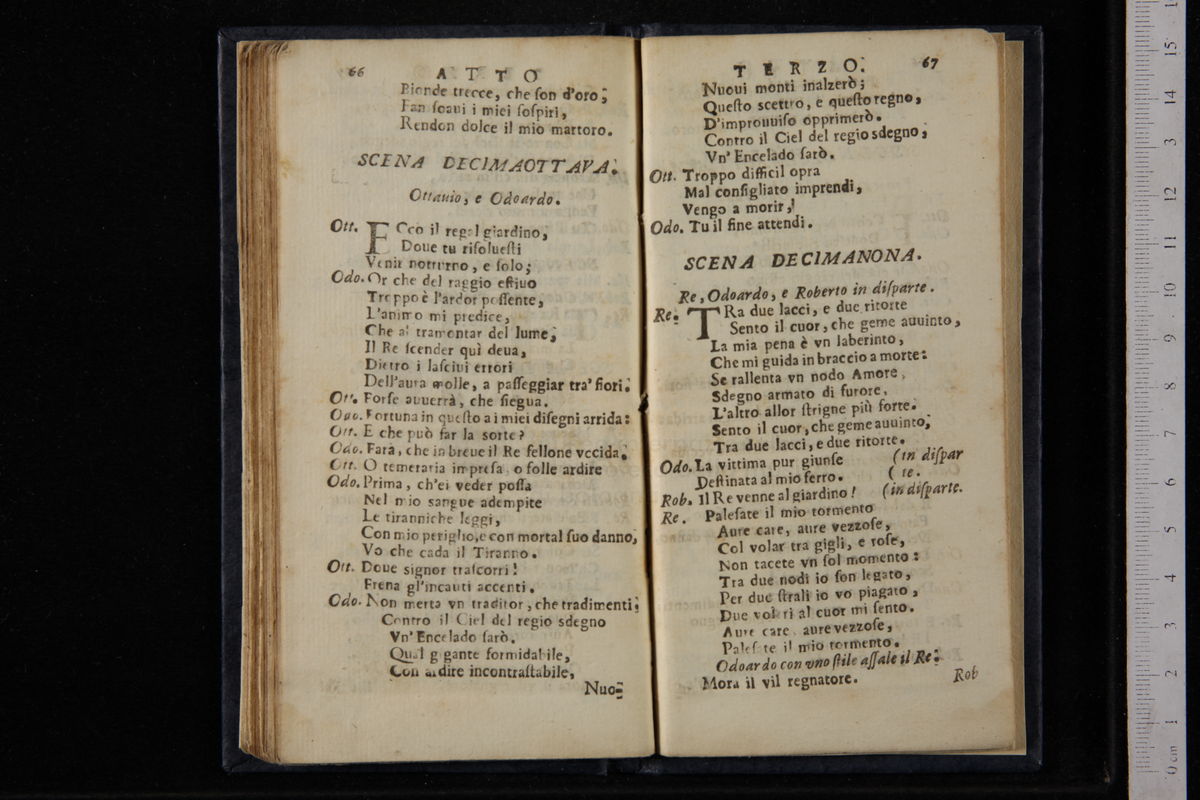 66 ATTO
Bionde trecce, che ſon d'oro;
Fan ſoaui i miei ſoſpiri,
Rendon dolce il mio martoro.
SCENA DECIMAOTTAVA.
Ottauio, e Odoardo.
Ott. ECco il regal giardino,
Doue tu riſolueſti
Venir notturno, e ſolo;
Odo. Or che del raggio eſtiuo
Troppo è l'ardor poſſente,
L'animo mi predice,
Che al tramontar del lume,
Il Re ſcender quì deua,
Dietro i laſciui errori
Dell'aura molle, a paſſeggiar tra' fiori.
Ott. Forſe auuerrà, che ſiegua.
Odo. Fortuna in queſto a i miei diſegni arrida:
Ott. E che può far la sorte?
Odo. Farà, che in breue il Re fellone vccida.
Ott. O temeraria impreſa, o folle ardire
Odo. Prima, ch'ei veder poſſa
Nel mio sangue adempite
Le tiranniche leggi,
Con mio periglio, e con mortal ſuo danno,
Vo che cada il Tiranno.
Ott. Doue signor traſcorri!
Frena gl'incauti accenti.
Odo. Non merta vn traditor, che tradimenti;
Contro il Ciel del regio sdegno
Vn' Encelado ſarò.
Qual gigante formidabile,
Con ardire incontraſtabile,
Nuo-
TERZO. 67
Nuoui monti inalzerò;
Queſto scettro, e queſto regno,
D'improuuiſo opprimerò.
Contro il Ciel del regio sdegno,
Vn' Encelado ſarò.
Ott. Troppo difficil opra
Mal conſigliato imprendi,
Vengo a morir,!
Odo. Tu il fine attendi.
SCENA DECIMANONA.
Re, Odoardo, e Roberto in diſparte.
Re. TRa due lacci, e due ritorte
Sento il cuor, che geme auuinto,
La mia pena è vn laberinto,
Che mi guida in braccio a morte:
Se rallenta vn nodo Amore,
Sdegno armato di furore,
L'altro allor ſtrigne più forte.
Sento il cuor, che geme auuinto,
Tra due lacci, e due ritorte.
Odo. La vittima pur giunſe (in diſpar
Deſtinata al mio ferro. ( te.
Rob. Il Re venne al giardino! (in diſparte.
Re. Paleſate il mio tormento
Aure care, aure vezzoſe,
Col volar tra gigli, e roſe,
Non tacete vn ſol momento:
Tra due nodi io ſon legato,
Per due ſtrali io vo piagato,
Due voleri al cuor mi ſento.
Aure care, aure vezzoſe,
Paleſate il mio tormento.
Odoardo con vno ſtile aſſale il Re.
Mora il vil regnatore.
Rob
15
14
13
12
11
10
9
8
7
6
5
4
3
2
1
0 cm